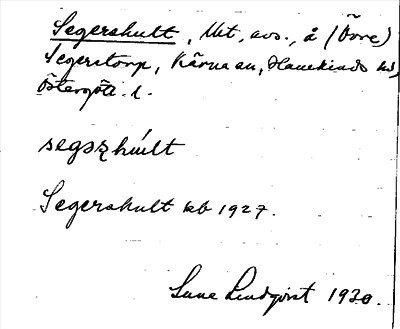 Segershult, lht, avs., å (Övre)
Segerstorp, Kärna sn, Hanekinds hd,
Östergötl. l.
segʂhúlt
Segershult kb 1927.
Sune Lindqvist 1930.